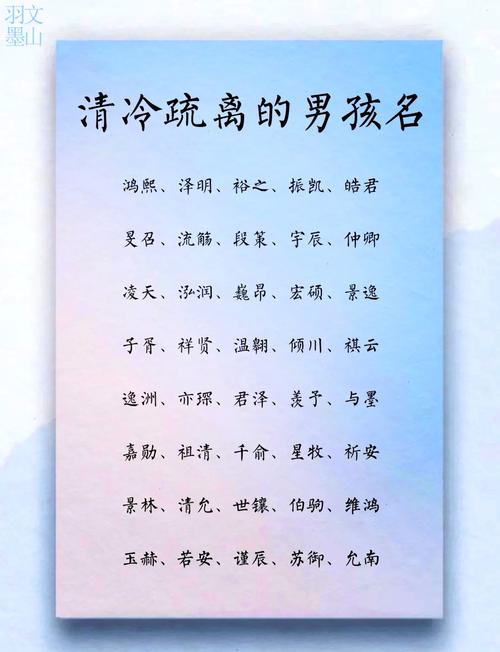 羽文
墨山
清冷疏离的男孩名
鸿熙、泽明、裕之、振凯、皓君
旻召、流觞、段策、宇辰、仲卿
凌天、泓润、巍昂、宏硕、景逸
子胥、祥贤、温翱、倾川、祺云
逸洲、亦琛、君泽、羡予、与墨
嘉勋、祖清、千俞、星牧、祈安
景林、清允、世镶、伯驹、维鸿
玉赫、若安、谨辰、苏御、允南